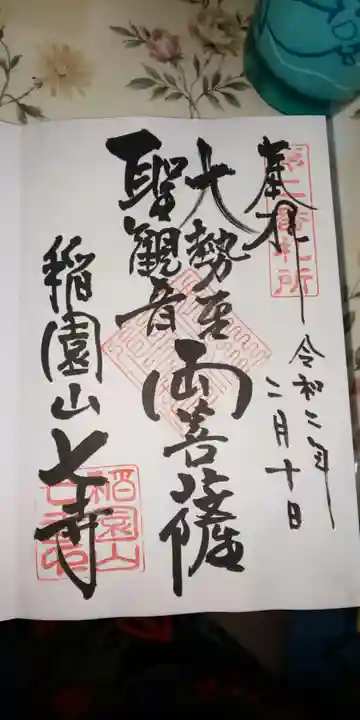 奉拝
第二番札所
令和二年
二月十日
大勢至
聖観音
両菩薩
稲園山七寺
稲園山